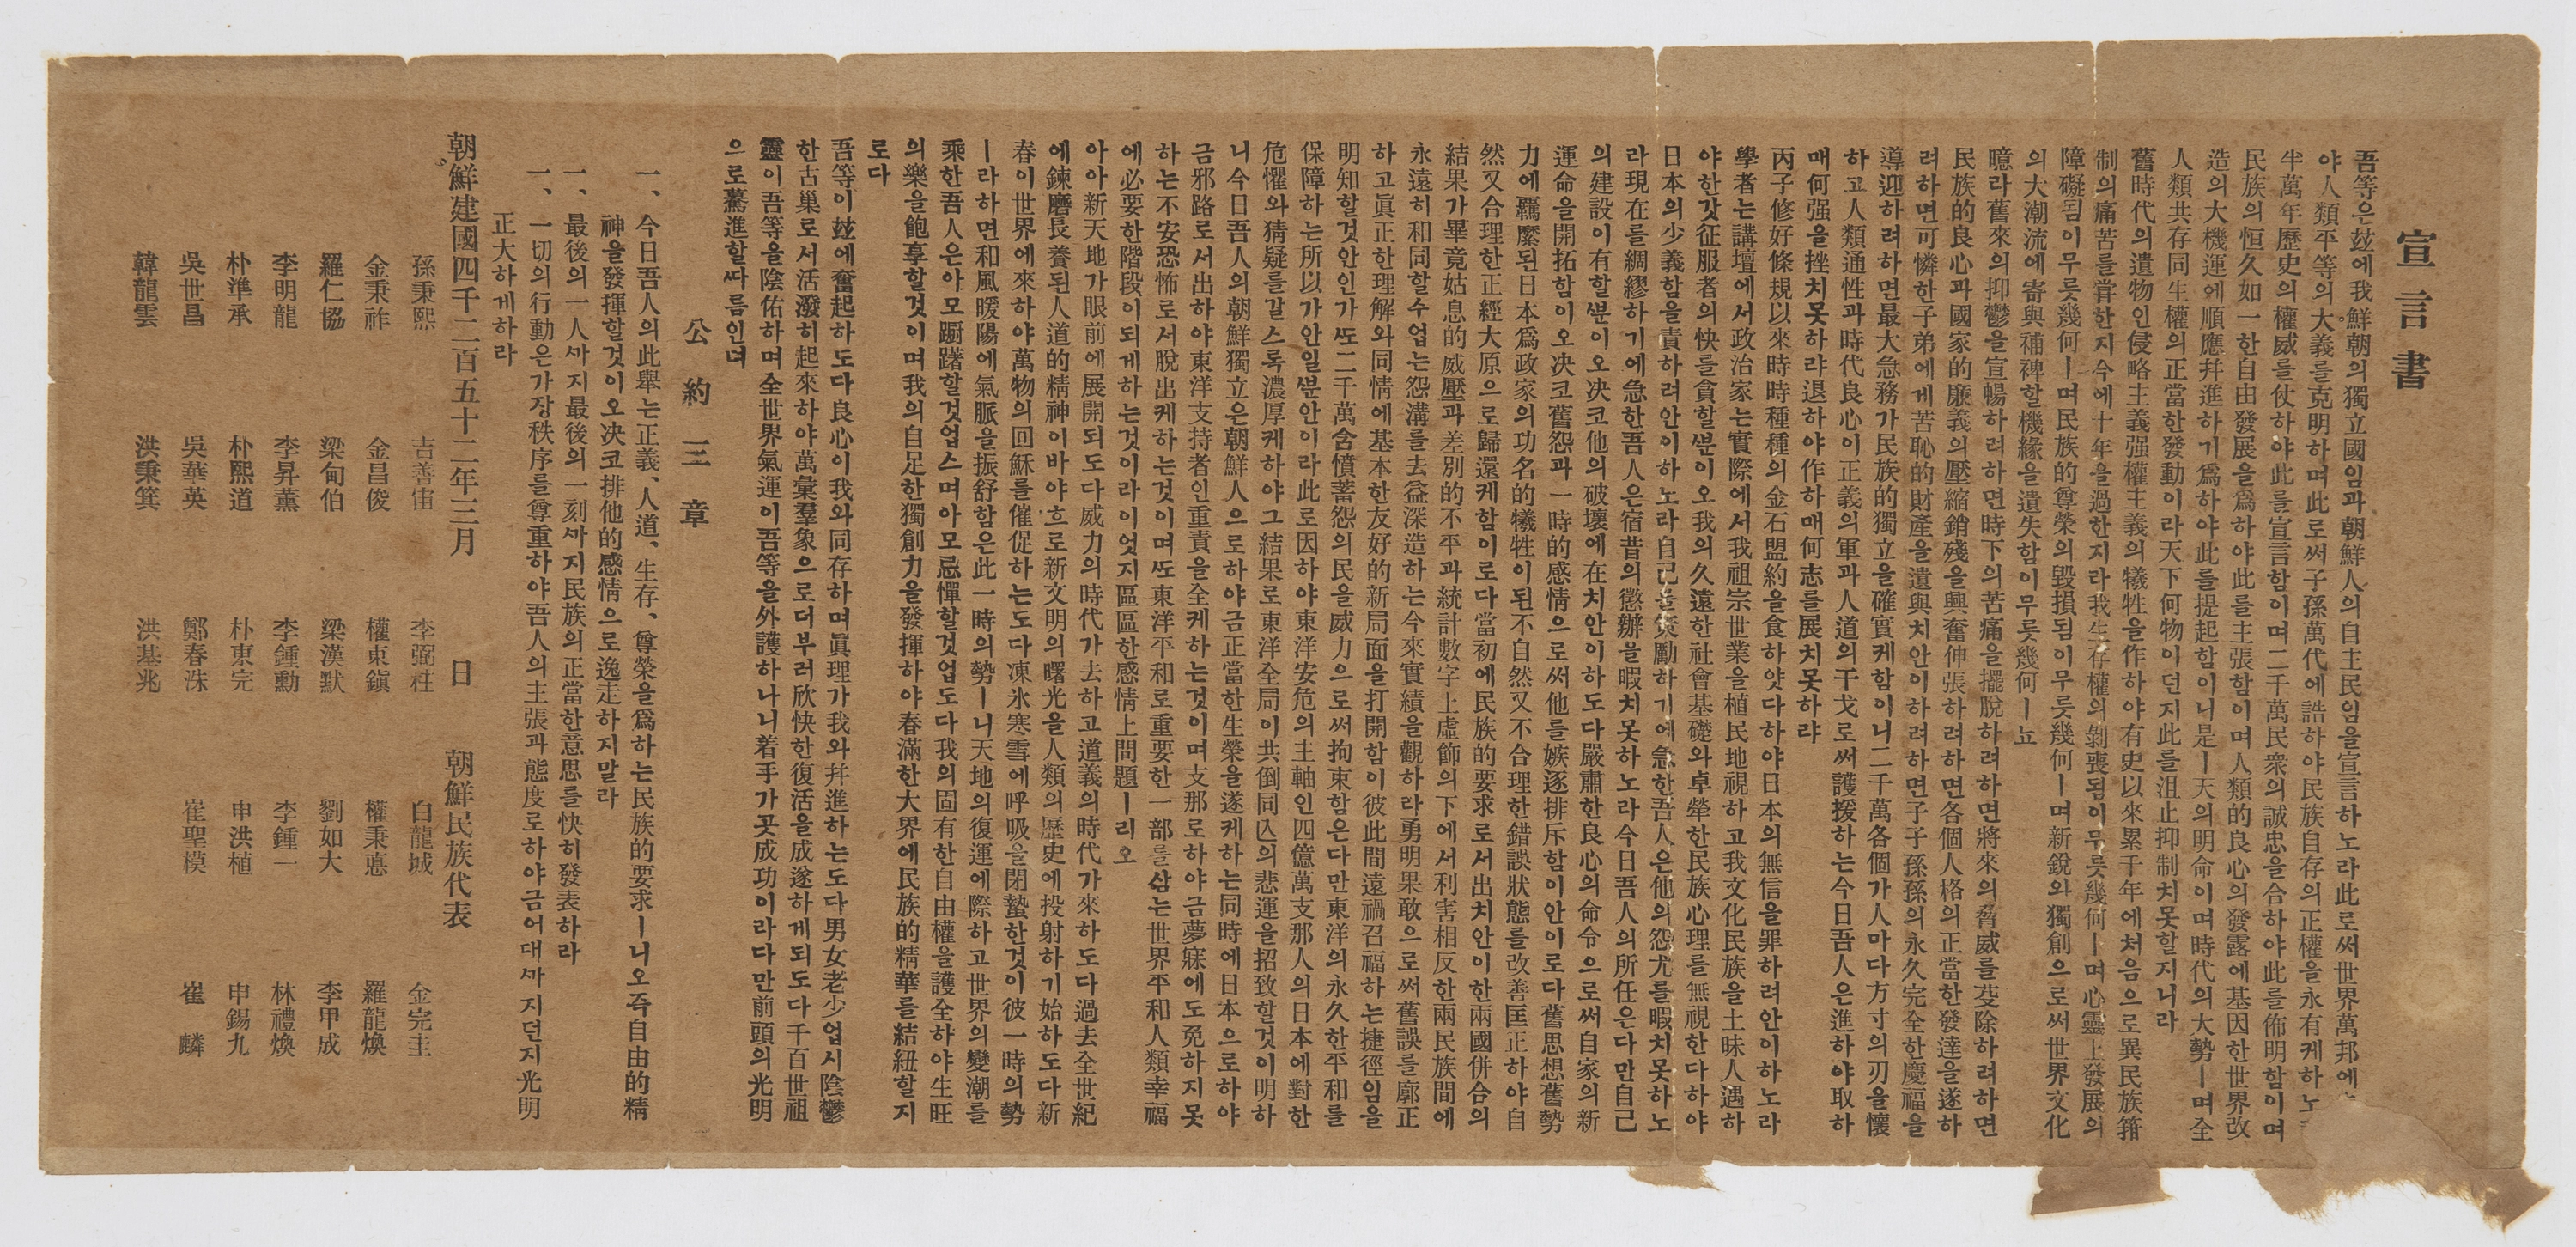 宣言書
吾等은玆에我鮮朝의獨立國임과朝鮮人의自主民임을宣言하노라此로써世界萬邦에
야人類平等의大義를克明하며此로써子孫萬代에誥하야民族自存의正權을永有케하노
半萬年歷史의權威를仗하야此를宣言함이며二千萬民衆의誠忠을合하야此를佈明함이며
民族의恒久如一한自由發展을爲하야此를主張함이며人類的良心의發露에基因한世界改
造의大機運에順應幷進하기爲하야此를提起함이니是ㅣ天의明命이며時代의大勢ㅣ며全
人類共存同生權의正當한發動이라天下何物이던지此를沮止抑制치못할지니라
舊時代의遺物인侵略主義强權主義의犧牲을作하야有史以來累千年에처음으로異民族箝
制의痛苦를嘗한지今에十年을過한지라我生存權의剝喪됨이무릇幾何ㅣ며心靈上發展의
障礙됨이무릇幾何ㅣ며民族的尊榮의毁損됨이무릇幾何ㅣ며新銳와獨創으로써世界文化
의大潮流에寄與補裨할機緣을遺失함이무릇幾何ㅣ뇨
噫라舊來의抑鬱을宣暢하려하면時下의苦痛을擺脫하려하면將來의脅威를芟除하려하면
民族的良心과國家的廉義의壓縮銷殘을興奮伸張하려하면各個人格의正當한發達을遂하
려하면可憐한子弟에게苦恥的財產을遺與치안이하려하면子子孫孫의永久完全한慶福을
導迎하려하면最大急務가民族的獨立을確實케함이니二千萬各個가人마다方寸의刃을懷
하고人類通性과時代良心이正義의軍과人道의干戈로써護援하는今日吾人은進하야取하
매何强을挫치못하랴退하야作하매何志를展치못하랴
丙子修好條規以來時時種種의金石盟約을食하얏다하야日本의無信을罪하려안이하노라
學者는講壇에서政治家는實際에서我祖宗世業을植民地視하고我文化民族을土昧人遇하
야한갓征服者의快를貪할ᄲᅮᆫ이오我의久遠한社會基礎와卓犖한民族心理를無視한다하야
日本의少義함을責하려안이하노라自己를策勵하기에急한吾人은他의怨尤를暇치못하노
라現在를綢繆하기에急한吾人은宿昔의懲辦을暇치못하노라今日吾人의所任은다만自己
의建設이有할ᄲᅮᆫ이오決코他의破壞에在치안이하도다嚴肅한良心의命令으로써自家의新
運命을開拓함이오決코舊怨과一時的感情으로써他를嫉逐排斥함이안이로다舊思想舊勢
力에羈縻된日本爲政家의功名的犧牲이된不自然又不合理한錯誤狀態를改善匡正하야自
然又合理한正經大原으로歸還케함이로다當初에民族的要求로서出치안이한兩國併合의
結果가畢竟姑息的威壓과差別的不平과統計數字上虛飾의下에서利害相反한兩民族間에
永遠히和同할수업는怨溝를去益深造하는今來實績을觀하라勇明果敢으로써舊誤를廓正
하고眞正한理解와同情에基本한友好的新局面을打開함이彼此間遠禍召福하는捷徑임을
明知할것안인가ᄯᅩ二千萬含憤蓄怨의民을威力으로써拘束함은다만東洋의永久한平和를
保障하는所以가안일ᄲᅮᆫ안이라此로因하야東洋安危의主軸인四億萬支那人의日本에對한
危懼와猜疑를갈스록濃厚케하야그結果로東洋全局이共倒同亡의悲運을招致할것이明하
니今日吾人의朝鮮獨立은朝鮮人으로하야금正當한生榮을遂케하는同時에日本으로하야
금邪路로서出하야東洋支持者인重責을全케하는것이며支那로하야금夢寐에도免하지못
하는不安恐怖로서脫出케하는것이며ᄯᅩ東洋平和로重要한一部를삼는世界平和人類幸福
에必要한階段이되게하는것이라이엇지區區한感情上問題ㅣ리오
아아新天地가眼前에展開되도다威力의時代가去하고道義의時代가來하도다過去全世紀
에鍊磨長養된人道的精神이바야흐로新文明의曙光을人類의歷史에投射하기始하도다新
春이世界에來하야萬物의回穌를催促하는도다凍氷寒雪에呼吸을閉蟄한것이彼一時의勢
ㅣ라하면和風暖陽에氣脈을振舒함은此一時의勢ㅣ니天地의復運에際하고世界의變潮를
乘한吾人은아모躕躇할것업스며아모忌憚할것업도다我의固有한自由權을護全하야生旺
의樂을飽享할것이며我의自足한獨創力을發揮하야春滿한大界에民族的精華를結紐할지
로다
吾等이玆에奮起하도다良心이我와同存하며眞理가我와幷進하는도다男女老少업시陰鬱
한古巢로서活潑히起來하야萬彙羣象으로더부러欣快한復活을成遂하게되도다千百世祖
靈이吾等을陰佑하며全世界氣運이吾等을外護하나니着手가곳成功이라다만前頭의光明
으로驀進할ᄯᅡ름인뎌
公約三章
一、今日吾人의此擧는正義、人道、生存、尊榮을爲하는民族的要求ㅣ니오즉自由的精
神을發揮할것이오決코排他的感情으로逸走하지말라
一、最後의一人ᄭᅡ지最後의一刻ᄭᅡ지民族의正當한意思를快히發表하라
一、一切의行動은가장秩序를尊重하야吾人의主張과態度로하야금어대ᄭᅡ지던지光明
正大하게하라
朝鮮建國四千二百五十二年三月 日 朝鮮民族代表
孫秉熙 吉善宙 李弼柱 白龍城 金完圭
金秉祚 金昌俊 權東鎭 權秉悳 羅龍煥
羅仁協 梁甸伯 梁漢默 劉如大 李甲成
李明龍 李昇薰 李鍾勳 李鍾一 林禮煥
朴準承 朴熙道 朴東完 申洪植 申錫九
吳世昌 吳華英 鄭春洙 崔聖模 崔麟
韓龍雲 洪秉箕 洪基兆